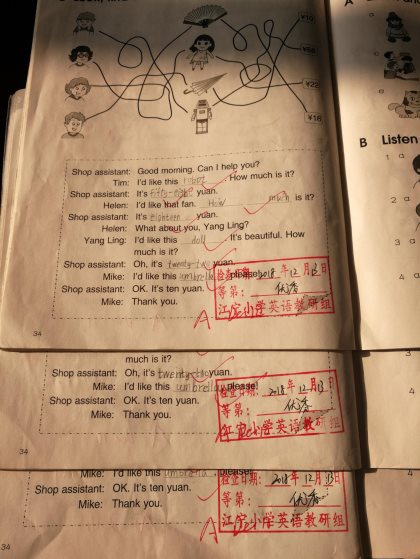 A
¥10
¥58
¥22
¥18
Shop assistant: Good morning. Can I help you?
Tim: I'd like this robot. How much is it?
Shop assistant: It's fifty-eight yuan.
Helen: I'd like that fan. How much is it?
Shop assistant: It's eighteen yuan.
Helen: What about you, Yang Ling?
Yang Ling: I'd like this doll. It's beautiful. How
much is it?
Shop assistant: Oh, it's twenty-two yuan.
Mike: I'd like this umbrella, please!
Shop assistant: OK. It's ten yuan.
Mike: Thank you.
检查日期: 2018年12月13日
等第: 优香
江定小学英语教研组
A
34
B Listen
1 a
2 a
3 a
4 a
much is it?
Shop assistant: Oh, it's twenty-two yuan.
Mike: I'd like this umbrella, please!
Shop assistant: OK. It's ten yuan.
Mike: Thank you.
检查日期: 2018年12月13日
等第: 优香
小学英语教研组
A
34
4
Mike: I'd like this umbrella, please!
Shop assistant: OK. It's ten yuan.
Mike: Thank you.
检查日期: 2018年12月13日
等第: 优香
江定小学英语教研组
A
34